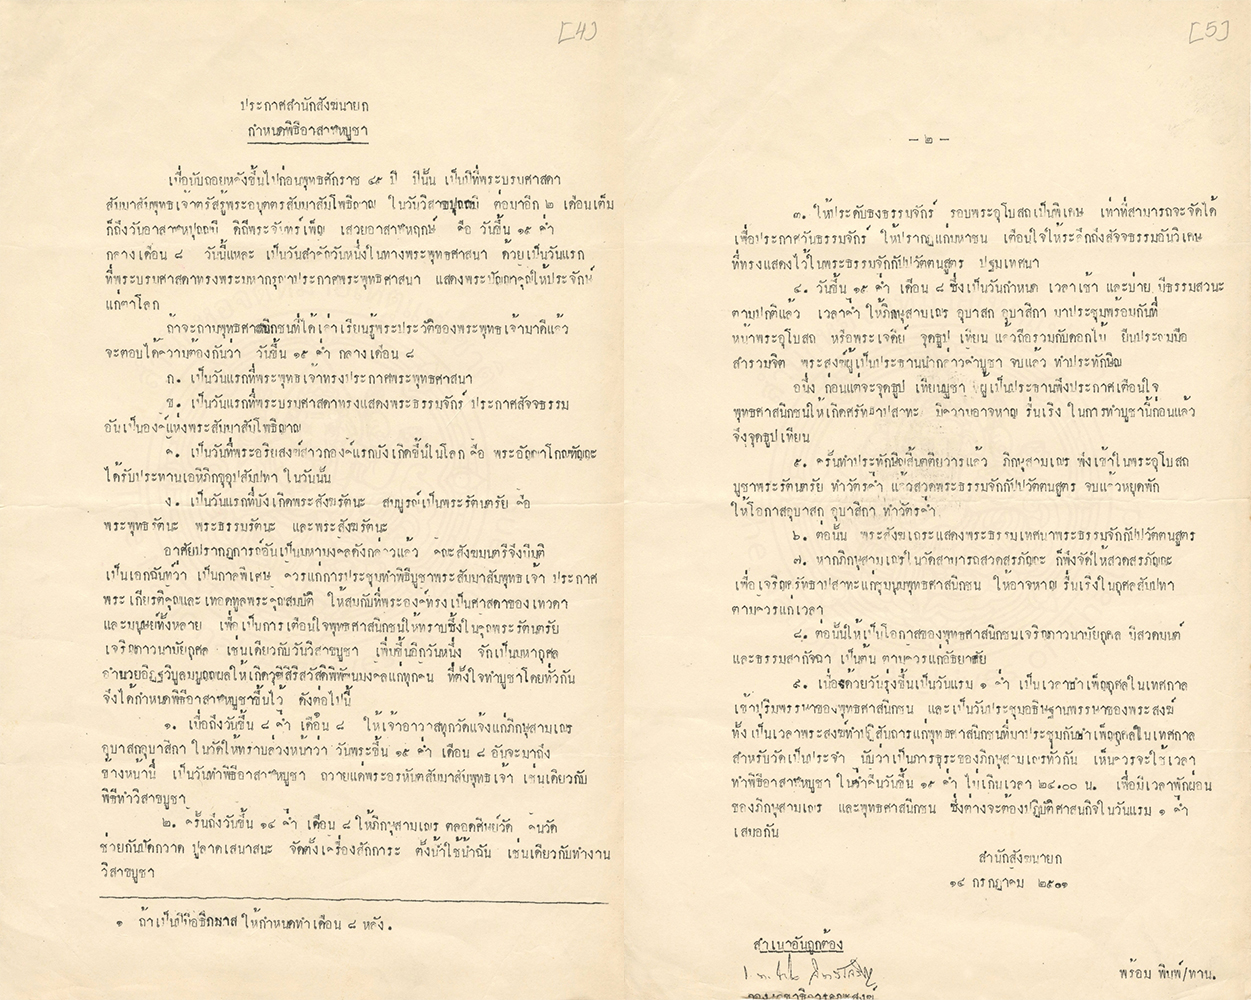 [4]
ประกาศสำนักสังฆนายก
กำหนดพิธีอาสาฬหบูชา
เมื่อนับถอยหลังขึ้นไปก่อนพุทธศักราช ๔๕ ปี ปีนั้น เป็นปีที่พระบรมศาสดา
สัมมาสัมพุทธเจ้าตรัสรู้พระอนุตตรสัมมาสัมโพธิญาณ ในวันวิสาขปุณณมี ต่อมาอีก ๒ เดือนเต็ม
ก็ถึงวันอาสาฬหปุณณมี ดิถีพระจันทร์เพ็ญ เสวยอาสาฬหฤกษ์ คือ วันขึ้น ๑๕ ค่ำ
กลางเดือน ๘ วันนี้แหละ เป็นวันสำคัญวันหนึ่งในทางพระพุทธศาสนา ด้วยเป็นวันแรก
ที่พระบรมศาสดาทรงพระมหากรุณาประกาศพระพุทธศาสนา แสดงพระปัญญาคุณให้ประจักษ์
แก่ตาโลก
ถ้าจะถามพุทธศาสนิกชนที่ได้เล่าเรียนรู้พระประวัติของพระพุทธเจ้ามาดีแล้ว
จะตอบได้ความต้องกันว่า วันขึ้น ๑๕ ค่ำ กลางเดือน ๘
ก. เป็นวันแรกที่พระพุทธเจ้าทรงประกาศพระพุทธศาสนา
ข. เป็นวันแรกที่พระบรมศาสดาทรงแสดงพระธรรมจักร์ ประกาศสัจจธรรม
อันเป็นองค์แห่งพระสัมมาสัมโพธิญาณ
ค. เป็นวันที่พระอริยสงฆ์สาวกองค์แรกบังเกิดขึ้นในโลก คือ พระอัญญาโกณฑัญญะ
ได้รับประทานเอหิภิกขุอุปสัมปทา ในวันนั้น
ง. เป็นวันแรกที่บังเกิดพระสังฆรัตนะ สมบูรณ์เป็นพระรัตนตรัย คือ
พระพุทธรัตนะ พระธรรมรัตนะ และพระสังฆรัตนะ
อาศัยปรากฏการณ์อันเป็นมหามงคลดังกล่าวแล้ว คณะสังฆมนตรีจึงมีมติ
เป็นเอกฉันท์ว่า เป็นกาลพิเศษ ควรแก่การประชุมทำพิธีบูชาพระสัมมาสัมพุทธเจ้า ประกาศ
พระเกียรติคุณและเทอดทูลพระคุณสมบัติ ให้สมกับที่พระองค์ทรงเป็นศาสดาของเทวดา
และมนุษย์ทั้งหลาย เพื่อเป็นการเตือนใจพุทธศาสนิกชนให้ทราบซึ้งในคุณพระรัตนตรัย
เจริญภาวนามัยกุศล เช่นเดียวกับวันวิสาขบูชา เพิ่มขึ้นอีกวันหนึ่ง จักเป็นมหากุศล
อำนวยอิฏฐวิบูลมนูญผลให้เกิดวุฒิสิริสวัสดิพิพัฒนมงคลแก่ทุกคน ที่ตั้งใจทำบูชาโดยทั่วกัน
จึงได้กำหนดพิธีอาสาฬหบูชาขึ้นไว้ ดังต่อไปนี้
๑. เมื่อถึงวันขึ้น ๘ ค่ำ เดือน ๘ ให้เจ้าอาวาสทุกวัดแจ้งแก่ภิกษุสามเณร
อุบาสกอุบาสิกา ในวัดให้ทราบล่วงหน้าว่า วันพระขึ้น ๑๕ ค่ำ เดือน ๘ อันจะมาถึง
ข้างหน้านี้ เป็นวันทำพิธีอาสาฬหบูชา ถวายแด่พระอรหันตสัมมาสัมพุทธเจ้า เช่นเดียวกับ
พิธีทำวิสาขบูชา
๒. ครั้นถึงวันขึ้น ๑๔ ค่ำ เดือน ๘ ให้ภิกษุสามเณร ตลอดศิษย์วัด คนวัด
ช่วยกันปัดกวาด ปูลาดเสนาสนะ จัดตั้งเครื่องสักการะ ตั้งน้ำใช้น้ำฉัน เช่นเดียวกับทำงาน
วิสาขบูชา
๑ ถ้าเป็นปีมีอธิกมาส ให้กำหนดทำเดือน ๘ หลัง.
[5]
- ๒ -
๓. ให้ประดับธงธรรมจักร์ รอบพระอุโบสถเป็นพิเศษ เท่าที่สามารถจะจัดได้
เพื่อประกาศวันธรรมจักร์ ให้ปรากฏแก่มหาชน เตือนใจให้ระลึกถึงสัจจธรรมอันวิเศษ
ที่ทรงแสดงไว้ในพระธรรมจักกัปปวัตตนสูตร ปฐมเทศนา
๔. วันขึ้น ๑๕ ค่ำ เดือน ๘ ซึ่งเป็นวันกำหนด เวลาเช้า และบ่าย มีธรรมสวนะ
ตามปกติแล้ว เวลาค่ำ ให้ภิกษุสามเณร อุบาสก อุบาสิกา มาประชุมพร้อมกันที่
หน้าพระอุโบสถ หรือพระเจดีย์ จุดธูป เทียน แล้วถือรวมกับดอกไม้ ยืนประณมมือ
สำรวมจิต พระสงฆ์ผู้เป็นประธานนำกล่าวคำบูชา จบแล้ว ทำประทักษิณ
อนึ่ง ก่อนแต่จะจุดธูป เทียนบูชา ผู้เป็นประธานพึงประกาศเตือนใจ
พุทธศาสนิกชนให้เกิดศรัทธาปสาทะ มีความอาจหาญ รื่นเริง ในการทำบูชานี้ก่อนแล้ว
จึงจุดธูปเทียน
๕. ครั้นทำประทักษิณสิ้นตติยวารแล้ว ภิกษุสามเณร พึงเข้าในพระอุโบสถ
บูชาพระรัตนตรัย ทำวัตรค่ำ แล้วสวดพระธรรมจักกัปปวัตตนสูตร จบแล้วหยุดพัก
ให้โอกาสอุบาสก อุบาสิกา ทำวัตรค่ำ
๖. ต่อนั้น พระสังฆเถระแสดงพระธรรมเทศนาพระธรรมจักกัปปวัตตนสูตร
๗. หากภิกษุสามเณรในวัดสามารถสวดสรภัญญะ ก็พึงจัดให้สวดสรภัญญะ
เพื่อเจริญศรัทธาปสาทะแก่ชุมนุมพุทธศาสนิกชน ให้อาจหาญ รื่นเริงในกุศลสัมปทา
ตามควรแก่เวลา
๘. ต่อนั้นให้เป็นโอกาสของพุทธศาสนิกชนเจริญภาวนามัยกุศล มีสวดมนต์
และธรรมสากัจฉา เป็นต้น ตามควรแก่อัธยาศัย
๙. เนื่องด้วยวันรุ่งขึ้นเป็นวันแรม ๑ ค่ำ เป็นเวลาบำเพ็ญกุศลในเทศกาล
เข้าปุริมพรรษาของพุทธศาสนิกชน และเป็นวันประชุมอธิษฐานพรรษาของพระสงฆ์
ทั้งเป็นเวลาพระสงฆ์ทำปฏิสันถารแก่พุทธศาสนิกชนที่มาประชุมกันบำเพ็ญกุศลในเทศกาล
สำหรับวัดเป็นประจำ นับว่าเป็นภารธุระของภิกษุสามเณรทั่วกัน เห็นควรจะใช้เวลา
ทำพิธีอาสาฬหบูชา ในค่ำคืนวันขึ้น ๑๕ ค่ำ ไม่เกินเวลา ๒๔.๐๐ น. เพื่อมีเวลาพักผ่อน
ของภิกษุสามเณร และพุทธศาสนิกชน ซึ่งต่างจะต้องปฏิบัติศาสนกิจในวันแรม ๑ ค่ำ
เสมอกัน
สำนักสังฆนายก
๑๔ กรกฎาคม ๒๕๐๑
สำเนาอันถูกต้อง
พร้อม พิมพ์/ทาน.